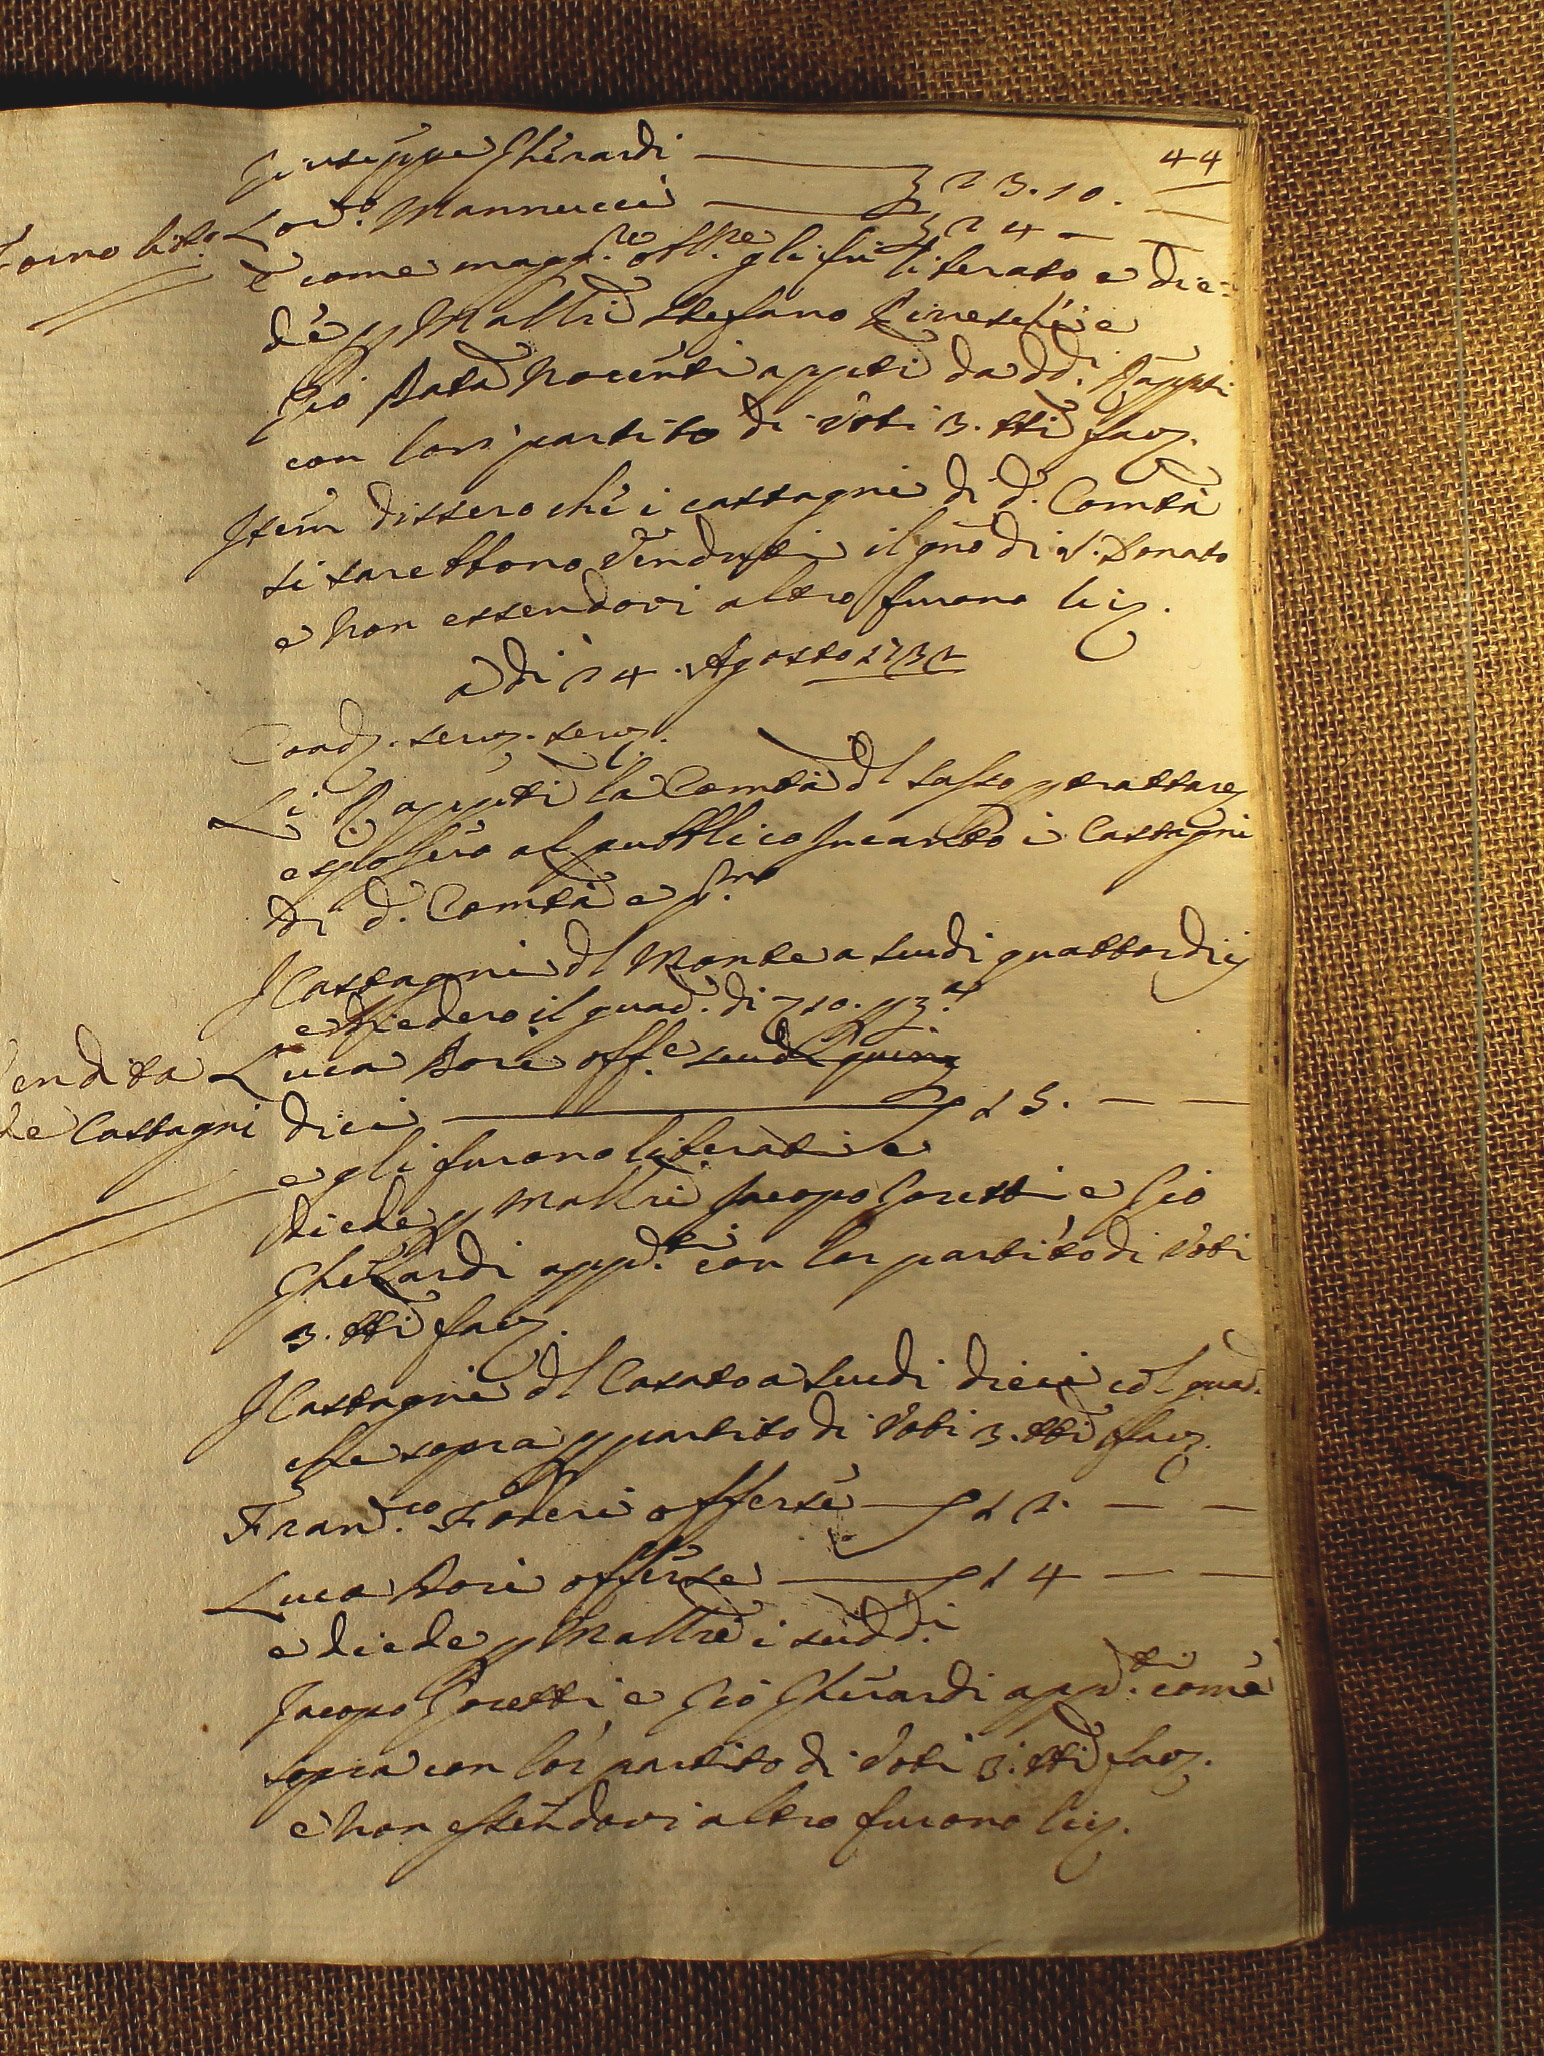 44
Giuseppe Gherardi 23.10.
Lor.o Mannucci 24
e come magg.re off.re gli fù liberato e die=
de p Mallri Stefano e
Gio Batta Nocenti apptti da dd.i Rappti
con lor partito di Voti 3. tti fav.
Item dissero che i castagni di d. Comtà
si sarebbono Venduti il gno di S. Donato
e non essendovi altro furono lic.
a di 24. Agosto 1732
Coad. serv. serv.
Li Rappttti la Comtà dl Sasso p trattare
esposero al pubblico Incanto i Castagni
di d. Comtà e p.mo
I Castagni dl Monte a scudi quattordici
e diedero il guad. di 10. p
Vendita
de Castagni
Luca Bori off.e scudi quin
dici 15.
e gli furono liberati e
diede p Mallri Jacopo Goretti e Gio
Gherardi app.ti con lor partito di Voti
3. tti fav.
I Castagni dl Casato a scudi dieci col guad.
che sopra p partito di Voti 3. tti fav.
Fran.co Foderi offerse 12.
Luca Bori offerse 14
e diede p Mallri i sudd.i
Jacopo Goretti e Gio Gherardi app.ti come
sopra con lor partito di Voti 3. tti fav.
e non essendovi altro furono lic.